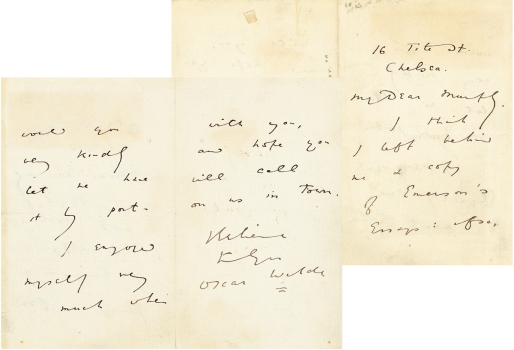 16 Tite St.
Chelsea.
My Dear Murphy,
I think
I left behind
me a copy
of Emerson's
Essays: if so,
would you
very kindly
let me have
it by post.
I enjoyed
myself very
much when
with you,
and hope you
will call
on us in Town.
Believe
Oscar Wilde